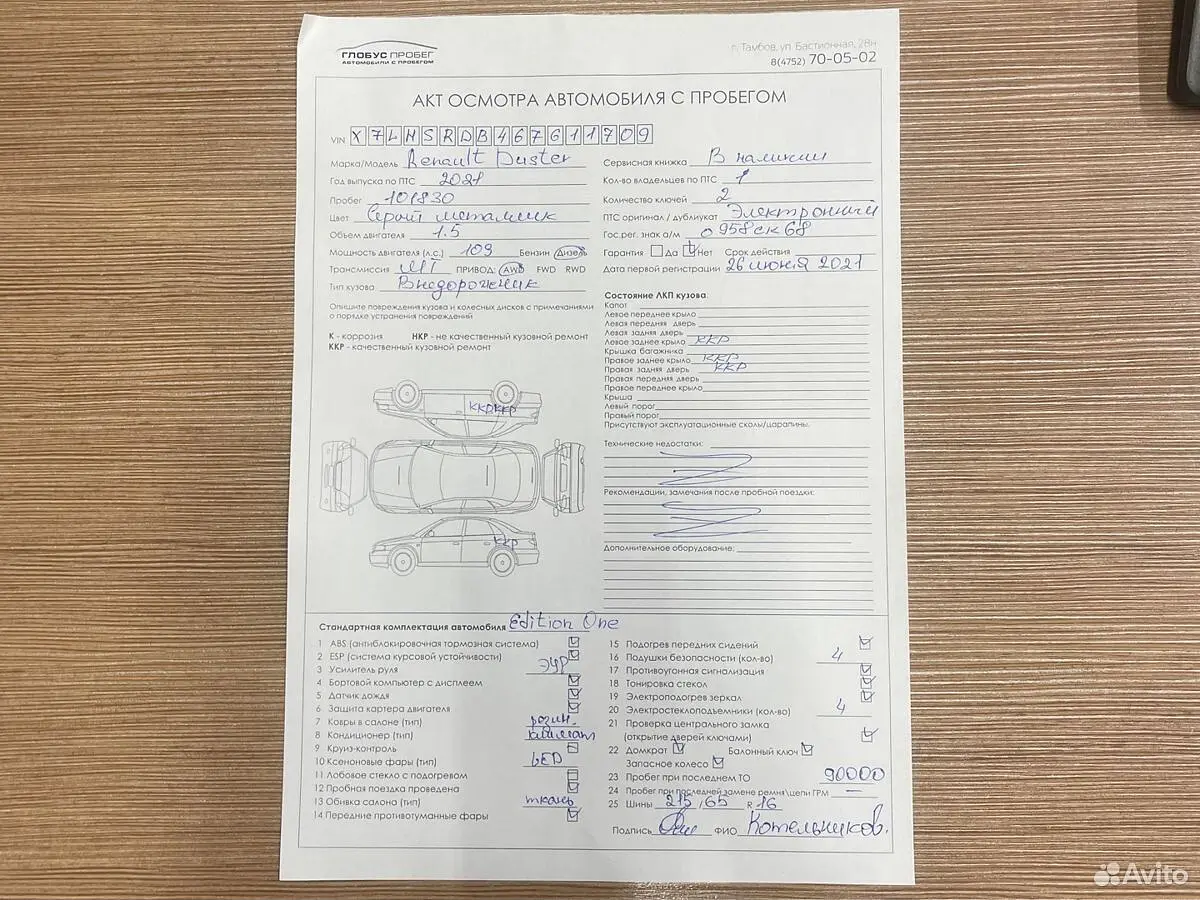 ГЛОБУС ПРОБЕГ
АВТОМОБИЛИ С ПРОБЕГОМ
г. Тамбов, ул. Бастионная, 28н
8(4752) 70-05-02
АКТ ОСМОТРА АВТОМОБИЛЯ С ПРОБЕГОМ
VIN X7LHSRDB467611709
Марка/Модель Renault Duster
Год выпуска по ПТС 2021
Пробег 101830
Цвет Серый металлик
Объем двигателя 1.5
Мощность двигателя (л.с.) 109 Бензин Дизель
Трансмиссия МТ ПРИВОД: AWD FWD RWD
Тип кузова Внедорожник
Опишите повреждения кузова и колесных дисков с примечаниями
о порядке устранения повреждений
К - коррозия НКР - не качественный кузовной ремонт
ККР - качественный кузовной ремонт
ККР ККР
ККР
Сервисная книжка В наличии
Кол-во владельцев по ПТС 1
Количество ключей 2
ПТС оригинал / дубликат Электронный
Гос.рег. знак а/м о958ск68
Гарантия Да Нет Срок действия
Дата первой регистрации 26 июня 2021
Состояние ЛКП кузова:
Капот
Левое переднее крыло
Левая передняя дверь
Левая задняя дверь
Левое заднее крыло ККР
Крышка багажника
Правое заднее крыло ККР
Правая задняя дверь ККР
Правая передняя дверь
Правое переднее крыло
Крыша
Левый порог
Правый порог
Присутствуют эксплуатационные сколы/царапины.
Технические недостатки:
Рекомендации, замечания после пробной поездки:
Дополнительное оборудование:
Стандартная комплектация автомобиля Edition One
1 ABS (антиблокировочная тормозная система)
2 ESP (система курсовой устойчивости)
3 Усилитель руля ЭУР
4 Бортовой компьютер с дисплеем
5 Датчик дождя
6 Защита картера двигателя
7 Ковры в салоне (тип) резин.
8 Кондиционер (тип) климат
9 Круиз-контроль
10 Ксеноновые фары (тип) LED
11 Лобовое стекло с подогревом
12 Пробная поездка проведена
13 Обивка салона (тип) ткань
14 Передние противотуманные фары
15 Подогрев передних сидений
16 Подушки безопасности (кол-во) 4
17 Противоугонная сигнализация
18 Тонировка стекол
19 Электроподогрев зеркал
20 Электростеклоподъемники (кол-во) 4
21 Проверка центрального замка
(открытие дверей ключами)
22 Домкрат Балонный ключ
Запасное колесо
23 Пробег при последнем ТО 90000
24 Пробег при последней замене ремня\цепи ГРМ —
25 Шины 215 / 65 R 16
Подпись ФИО Котельников.
Avito